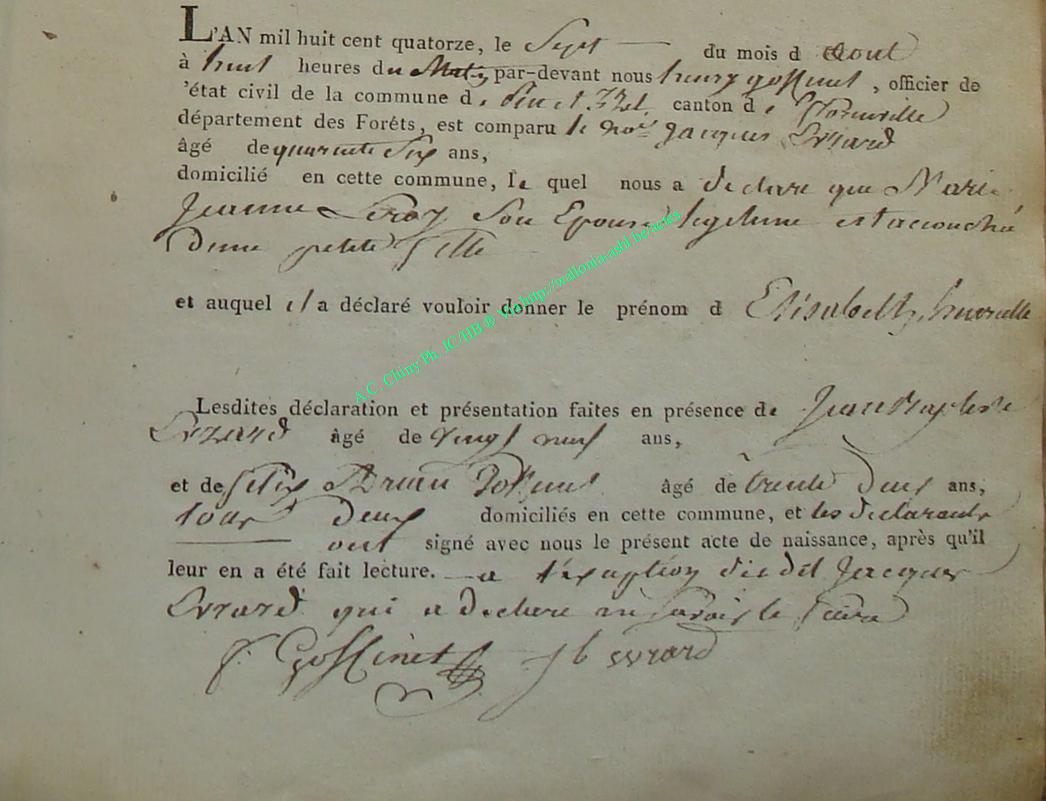 L'AN mil huit cent quatorze, le Sept du mois d aout
à huit heures du Matin par-devant nous henry gossinet, officier de
'état civil de la commune de Pin et Izel, canton de florenville
département des Forêts, est comparu le Jacques Evrard
âgé de quarente Six ans,
domicilié en cette commune, le quel nous a declaré que Marie
Jeanne Leroy Son Epouse legitime est accouchée
Dune petite fille
et auquel il a déclaré vouloir donner le prénom d Elisabeth,
A.C. Chiny Ph. JC/HB ® Via http://mallonia-asbl.be/actes
Lesdites déclaration et présentation faites en présence de Jean Baptiste
Evrard âgé de vingt neuf ans,
et de felix gossinet âgé de trente deux ans,
tous deux domiciliés en cette commune, et les declarants
ont signé avec nous le présent acte de naissance, après qu'il
leur en a été fait lecture. a l'exception dudit Jacques
Evrard qui a declare ne savoir le faire
f Gossinet J b evrard